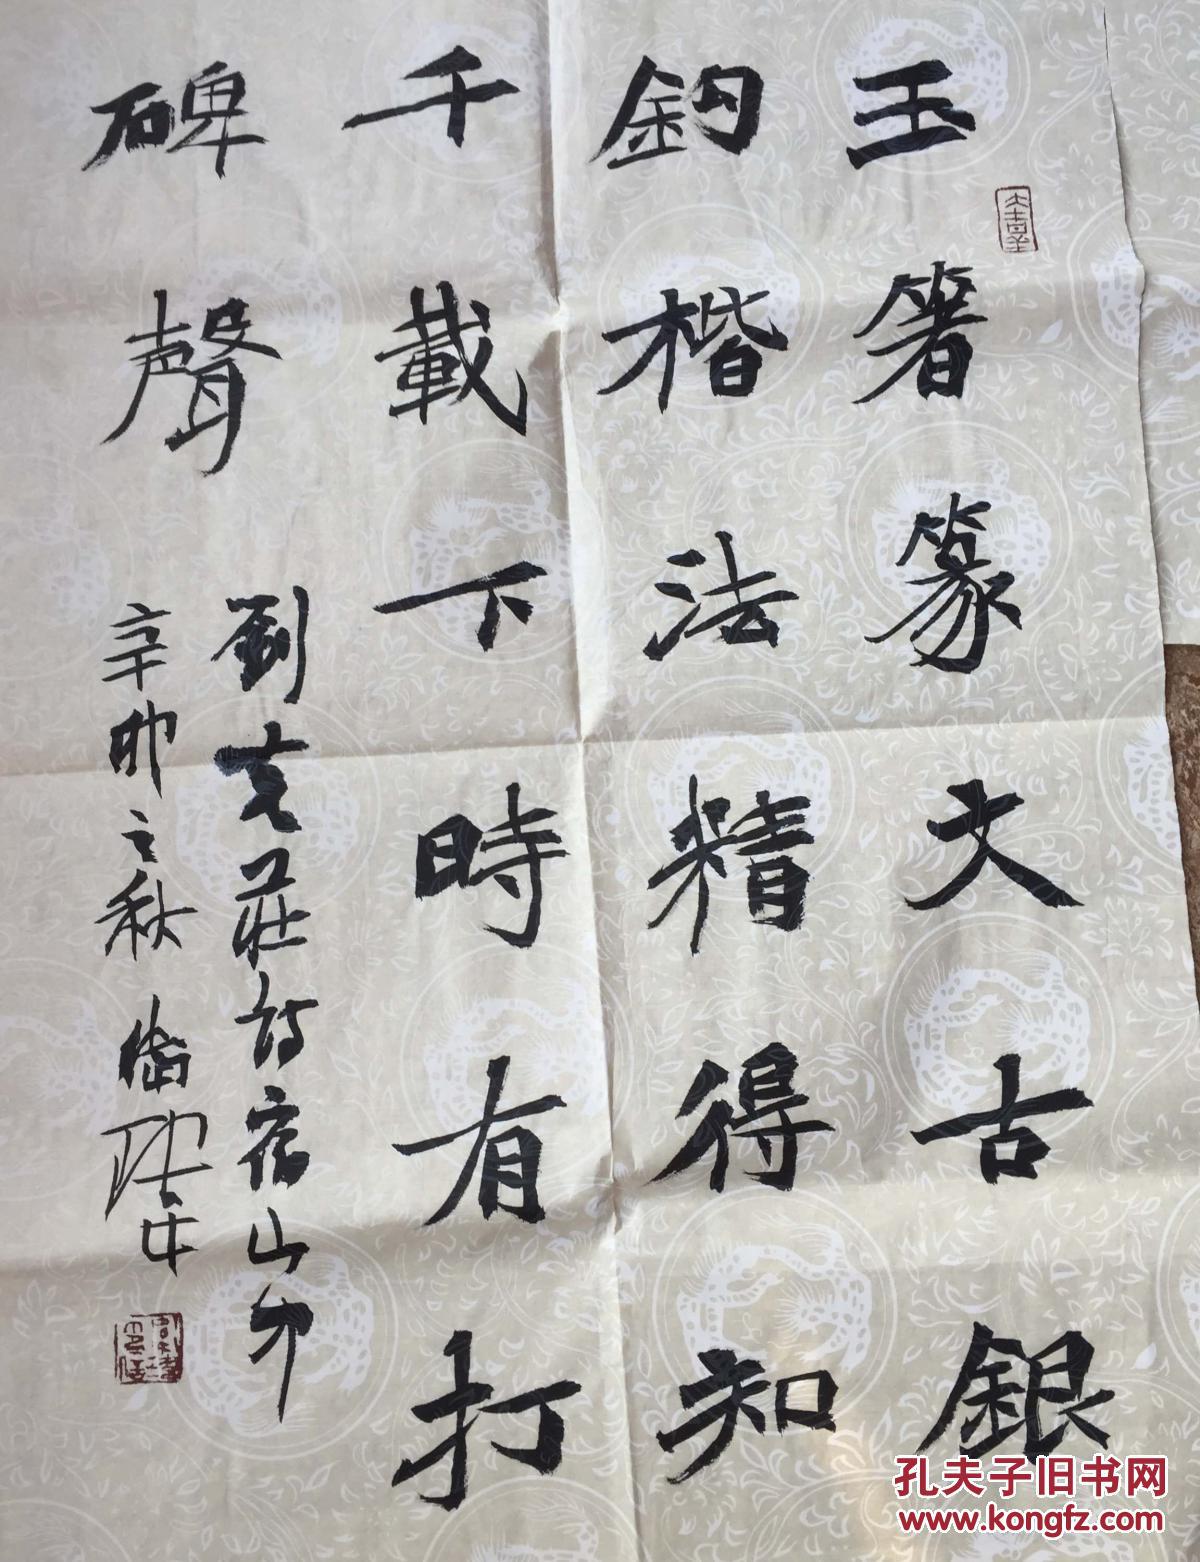 玉箸篆文古銀
鈎楷法精得知
千載下時有打
碑聲
劉克莊詩宿山中
辛卯之秋
孔夫子旧书网
www.kongfz.com